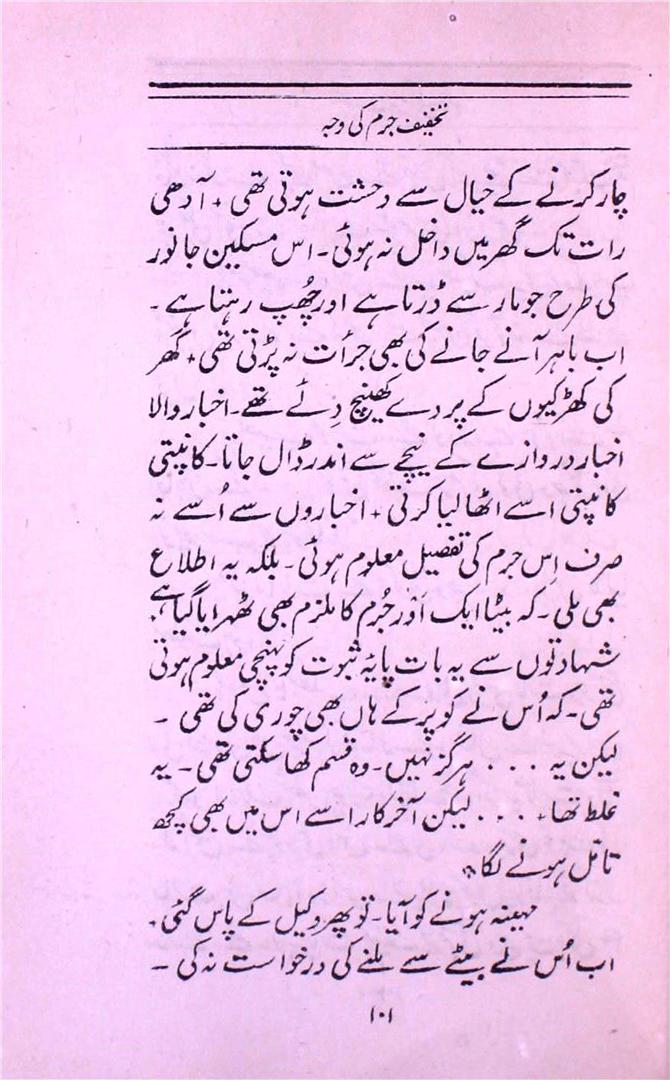 تخفیف جرم کی وجہ
چار کرنے کے خیال سے دحشت ہوتی تھی ٭ آدھی
رات تک گھر میں داخل نہ ہوئی۔ اس مسکین جانور
کی طرح جو مار سے ڈرتا ہے اور چُھپ رہتا ہے ۔
اب باہر آنے جانے کی بھی جرأت نہ پڑتی تھی ٭ گھر
کی کھڑکیوں کے پردے کھینچ دِئے تھے۔ اخبار والا
اخبار دردازے کے نیچے سے اندر ڈال جاتا۔ کانپتی
کانپتی اسے اٹھا لیا کرتی ٭ اخباروں سے اُسے نہ
صرف اِس جرم کی تفصیل معلوم ہوئی۔ بلکہ یہ اطلاع
بھی ملی۔ کہ بیٹا ایک اَوْر جُرم کا ملزم بھی ٹھہرایا گیا ہے ٭
شہادتوں سے یہ بات پایۂ ثبوت کو پہنچی معلوم ہوتی
تھی۔ کہ اُس نے کوپر کے ہاں بھی چوری کی تھی ۔
لیکن یہ ۔ ۔ ۔ ہرگز نہیں۔ وہ قسم کھا سکتی تھی ۔ یہ
غلط تھا ٭ ۔ ۔ ۔ لیکن آخر کار اسے اس میں بھی کچھ
تامل ہونے لگا ٭
مہینہ ہونے کو آیا۔ تو پھر وکیل کے پاس گئی ٭
اب اُس نے بیٹے سے ملنے کی درخواست نہ کی ۔
۱۰۱